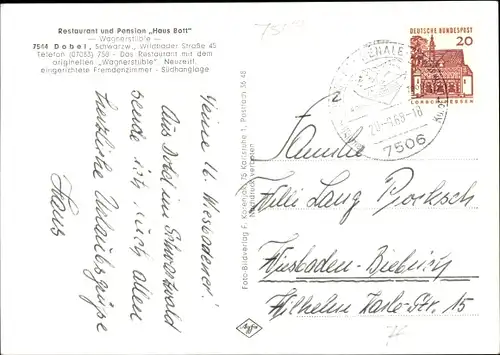 Restaurant und Pension „Haus Bott"
— Wagnerstüble —
7544 Dobel, Schwarzw., Wildbader Straße 45
Telefon (07083) 758 - Das Restaurant mit dem
originellen „Wagnerstüble". Neuzeitl.
eingerichtete Fremdenzimmer - Südhanglage
Meine lb. Wiesbadener!
Aus Dobel im Schwarzwald
sende ich Euch allen
herzliche Urlaubsgrüße
Hans
Foto-Bildverlag F. Kärenger, 75 Karlsruhe 1, Postfach 36 48
Nachdruck verboten
DEUTSCHE BUNDESPOST
20
LORSCH/HESSEN
7506
Familie
Willi Lang
Wiesbaden-Biebrich
Wilhelm Kalle-Str. 15